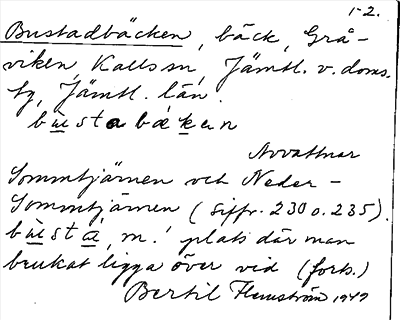 1-2.
Bustadbäcken, bäck, Grå-
viken, Kalls sn, Jämtl. v. doms.
tg, Jämtl. län.
bùstabäken
Avvattnar
Sommtjärnen och Neder-
Sommtjärnen (siffr. 230 o. 235).
bùsta, m.! plats där man
brukat ligga över vid (forts.)
Bertil Flemström 1949